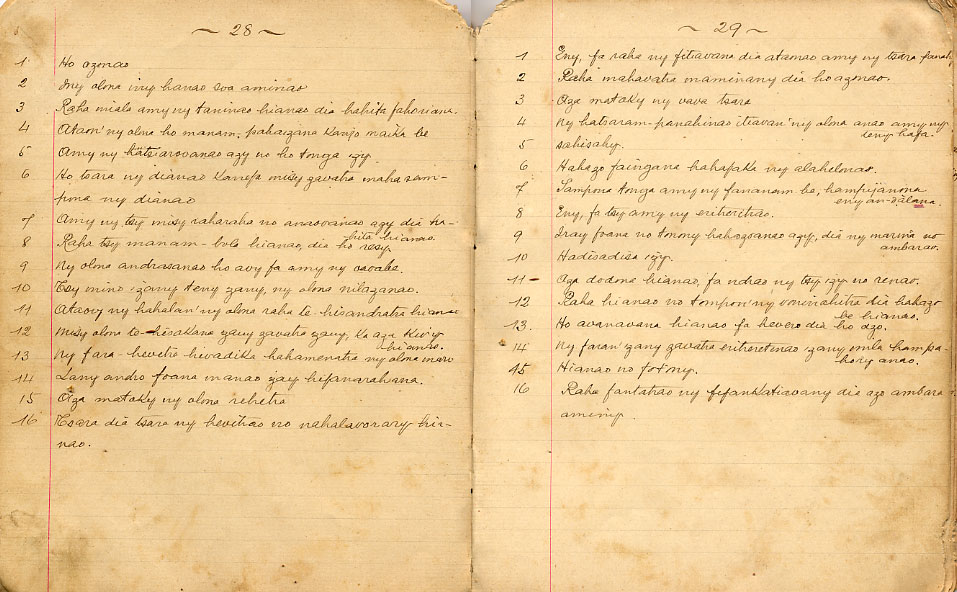 ~ 28 ~
1 Ho azonao
2 Iny olona iny hanao soa aminao
3 Raha miala amy ny taninao hianao dia hahita fahoriana.
4 Ataon' ny olona ho manam-pahaizana kanjo maika be
5 Amy ny hatsiarovanao azy no ho tonga izy.
6 Ho tsara ny dianao kanefa misy zavatra maha sam-
pona ny dianao
7 Amy ny tsy misy raharaha no anaovanao azy dia ha-
hita hianao.
8 Raha tsy manam-bola hianao, dia ho resy.
9 Ny olona andrasanao ho avy fa amy ny vavaka.
10 Tsy mino izany teny izany, ny olona nilazanao.
11 Ataovy ny hahalan' ny olona raha te-hisandratra hianao
12 Misy olona te-hisakana izany zavatra izany, ka aza kivy
hianao.
13 Ny fara-hevitra hivadika hahamenatra ny olona maro
14 Lany andro foana manao izay hifanarahana.
15 Aza matoky ny olona rehetra
16 Tsara dia tsara ny hevitrao no nahalavorary hia-
nao.
~ 29 ~
1 Eny, fa raha ny fitiavana dia ataonao amy ny tsara fanahy
2 Raha mahavatra maminany dia ho azonao.
3 Aza matoky ny vava tsara
4 Ny habaram-panahinao itiavan' ny olona anao amy ny
teny hafa.
5 sahisahy.
6 Hahazo faingana hahafaka ny alahelonao.
7 Sampona tonga amy ny fananam-be, hampijanona
eny an-dalana.
8 Eny, fa tsy amy ny eritreritrao.
9 Iray foana no tomony hahazoanao azy, dia ny marina no
ambarao.
10 Hadisadisa izy.
11 - Aza dodona hianao, fa ndrao ny tsy izy no renao.
12 Raha hianao no tompon' ny voninahitra dia hahazo
be hianao.
13. Ho avanavana hianao fa hevero dia ho azo.
14 Ny faran' izany zavatra eritreretinao izany mila hampa-
hory anao.
15 Hianao no foiny.
16 Raha fantatrao ny fifankatiavany dia azo ambara
aminy.